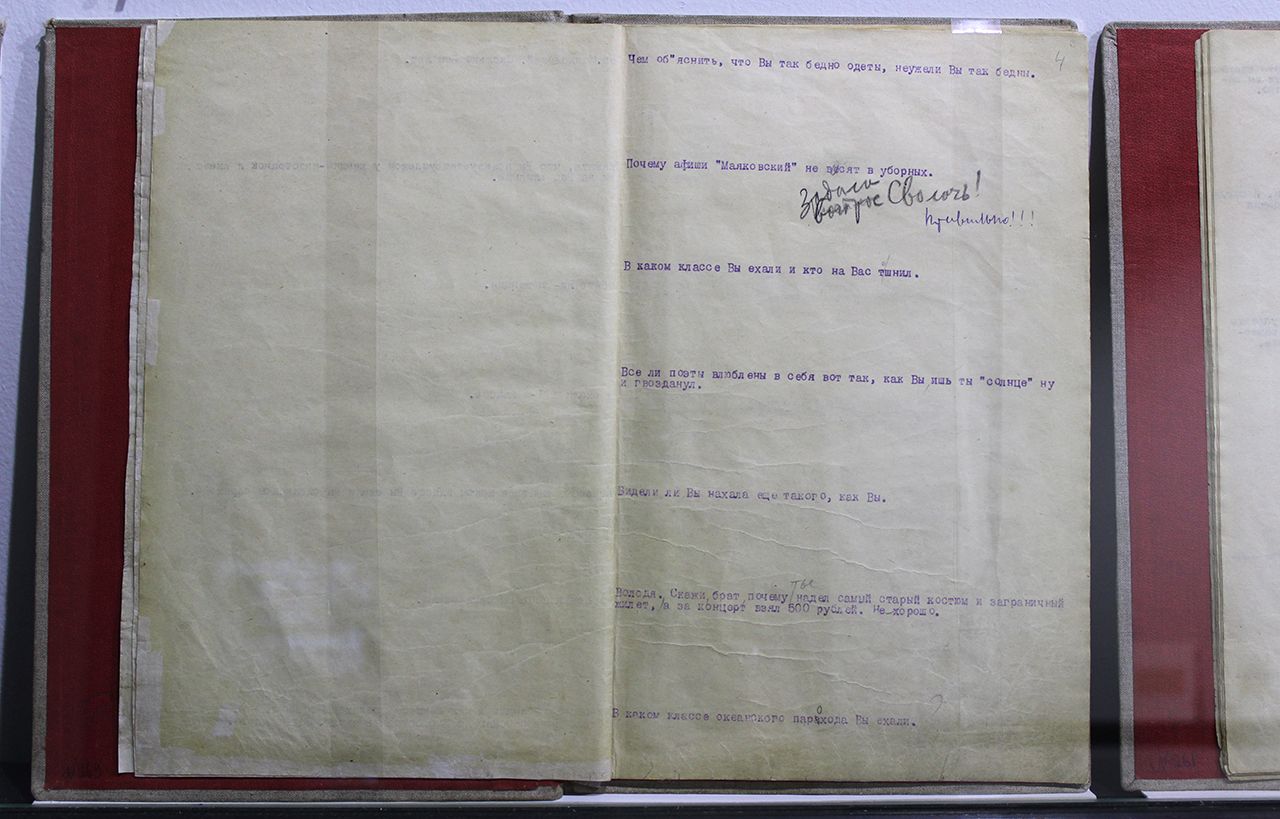 4
Чем об"яснить, что Вы так бедно одеты, неужели Вы так бедны.
Почему афиши "Маяковский" не висят в уборных.
вопрос Сволочь!
Правильно!!!
В каком классе Вы ехали и кто на Вас тшнил.
Все ли поэты влюблены в себя вот так, как Вы ишь ты "солнце" ну
и гвозданул.
Видели ли Вы нахала еще такого, как Вы.
ты
Володя. Скажи, брат почему надел самый старый костюм и заграничный
жилет, а за концерт взял 500 рублей. Не хорошо.
В каком классе океанского парохода Вы ехали.